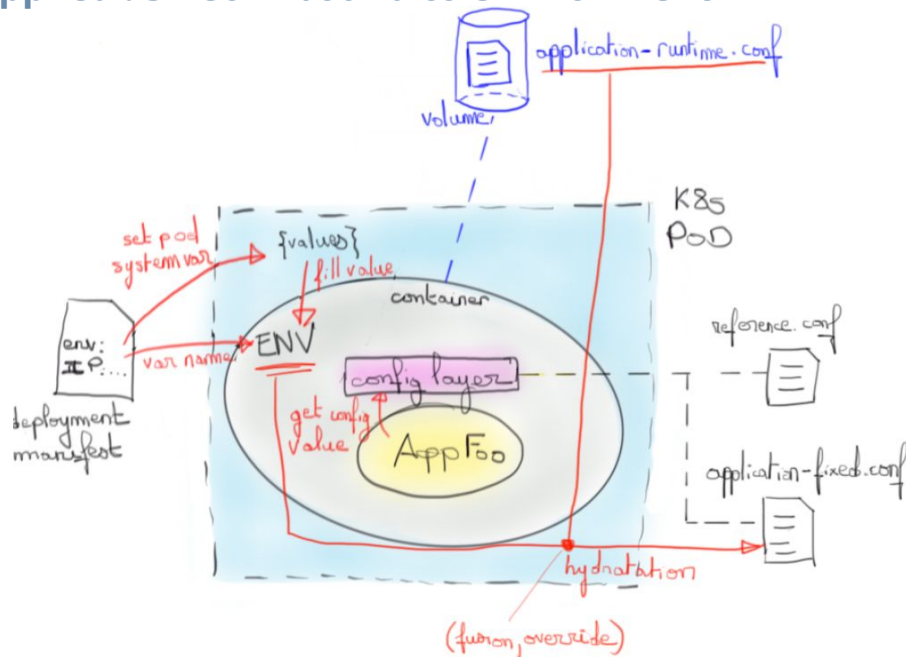 application-runtime.conf
volume
K8s
POD
set pod
system var
{values}
fill value
container
reference.conf
env:
IP....
var name
ENV
config layer
deployment
manifest
get config
value
AppFoo
application-fixed.conf
hydratation
(fusion, override)